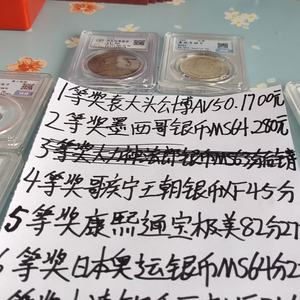 1等奖袁大头公博AV50.1700元
2等奖墨西哥银币MS64280元
3等奖大力神法郎银币MS63
4等奖哥疾宁王朝银币XF45分
5等奖康熙通宝极美82分
6等奖日本奥运银币MS64分